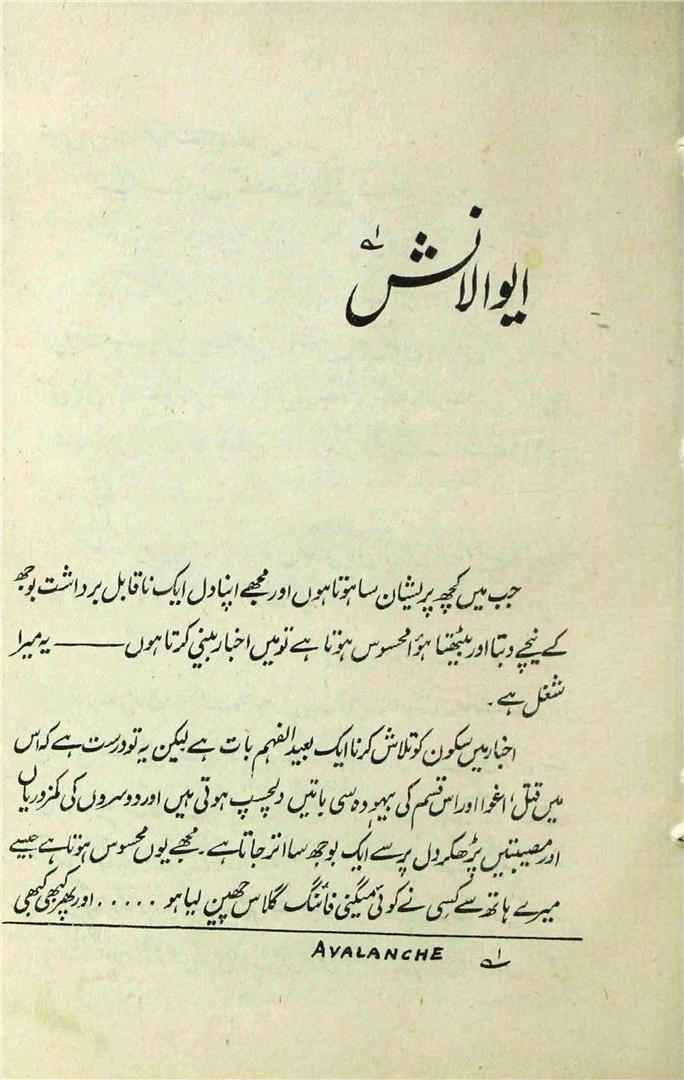 ایوالانش ؎۱
جب میں کچھ پریشان سا ہوتا ہوں اور مجھے اپنا دل ایک ناقابل برداشت بوجھ
کے نیچے دبتا اور بیٹھتا ہؤا محسوس ہوتا ہے تو میں اخبار بینی کرتا ہوں —— یہ میرا
شغل ہے۔
اخبار میں سکون کو تلاش کرنا ایک بعید الفہم بات ہے لیکن یہ تو درست ہے کہ اس
میں قتل، اغوا اور اس قسم کی بیہودہ سی باتیں دلچسپ ہوتی ہیں اور دوسروں کی کمزوریاں
اور مصیبتیں پڑھ کر دل پر سے ایک بوجھ سا اتر جاتا ہے۔ مجھے یوں محسوس ہوتا ہے جیسے
میرے ہاتھ سے کسی نے کوئی میگنی فائنگ گلاس چھین لیا ہو ..... اور پھر کبھی کبھی
؎۱ AVALANCHE